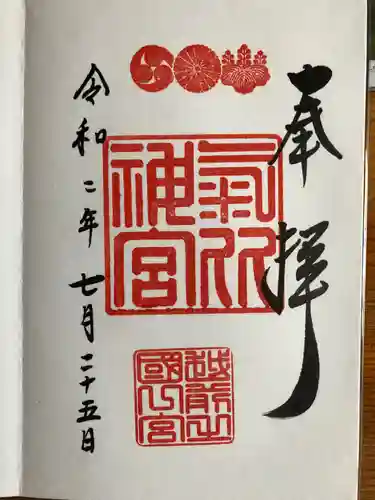 奉拝
氣比神宮
越前之國一宮
令和二年七月二十五日